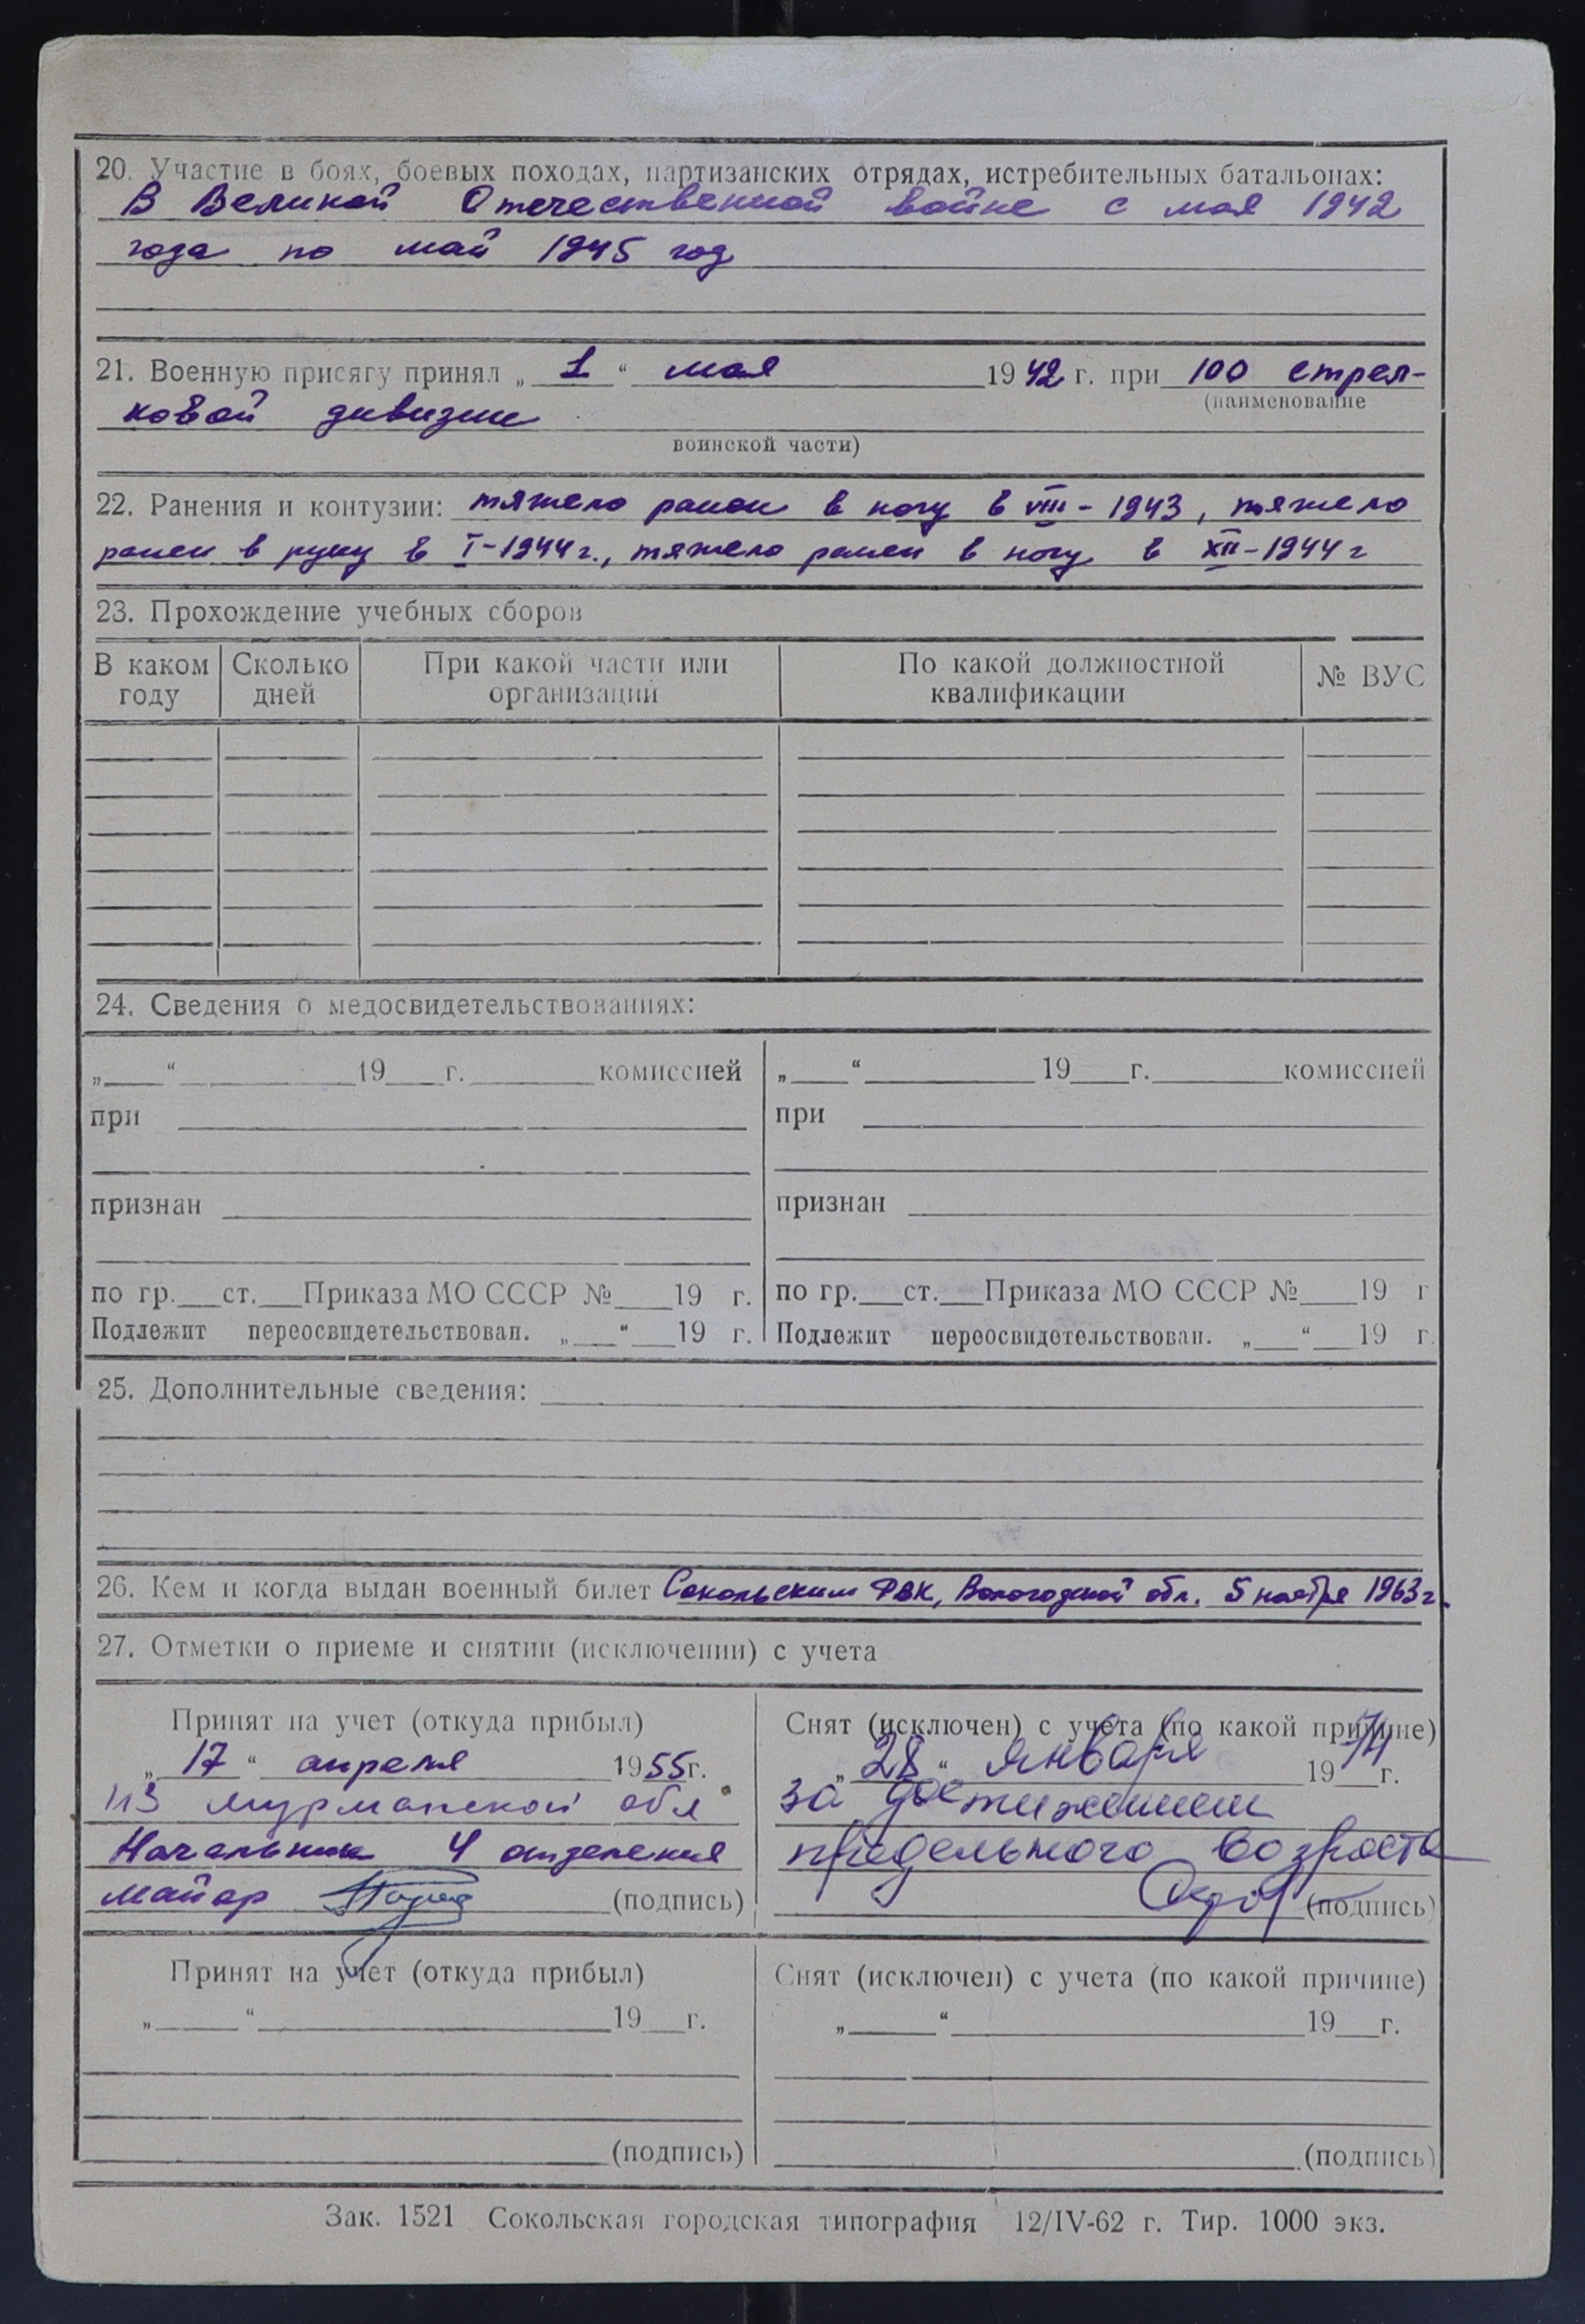 20. Участие в боях, боевых походах, партизанских отрядах, истребительных батальонах:
В Великой Отечественной войне с мая 1942
года по май 1945 год
21. Военную присягу принял „ 1 “ мая 1942 г. при 100 стрел-
(наименование
ковой дивизии
воинской части)
22. Ранения и контузии: тяжело ранен в ногу в VIII-1943, тяжело
ранен в руку в I-1944г., тяжело ранен в ногу в XII-1944г
23. Прохождение учебных сборов
В каком году Сколько дней При какой части или организации По какой должностной квалификации № ВУС
24. Сведения о медосвидетельствованиях:
„___“ ______ 19___г. ______ комиссией „___“ ______ 19___г. ______ комиссией
при при
признан признан
по гр.___ст.___Приказа МО СССР №___19 г. по гр.___ст.___Приказа МО СССР №___19 г
Подлежит переосвидетельствован. „___“___19 г. Подлежит переосвидетельствован. „___“___19 г.
25. Дополнительные сведения:
26. Кем и когда выдан военный билет Сокольским РВК, Вологодской обл. 5 ноября 1963г.
27. Отметки о приеме и снятии (исключении) с учета
Принят на учет (откуда прибыл)
„ 17 “ апреля 1955г.
из мурманской обл
Начальник 4 отделения
майор (подпись)
Снят (исключен) с учета (по какой причине)
„ 28 “ января 1974 г.
за достижением
предельного возраста
(подпись)
Принят на учет (откуда прибыл)
„___“ ______ 19___г.
(подпись)
Снят (исключен) с учета (по какой причине)
„___“ ______ 19___г.
(подпись)
Зак. 1521 Сокольская городская типография 12/IV-62 г. Тир. 1000 экз.